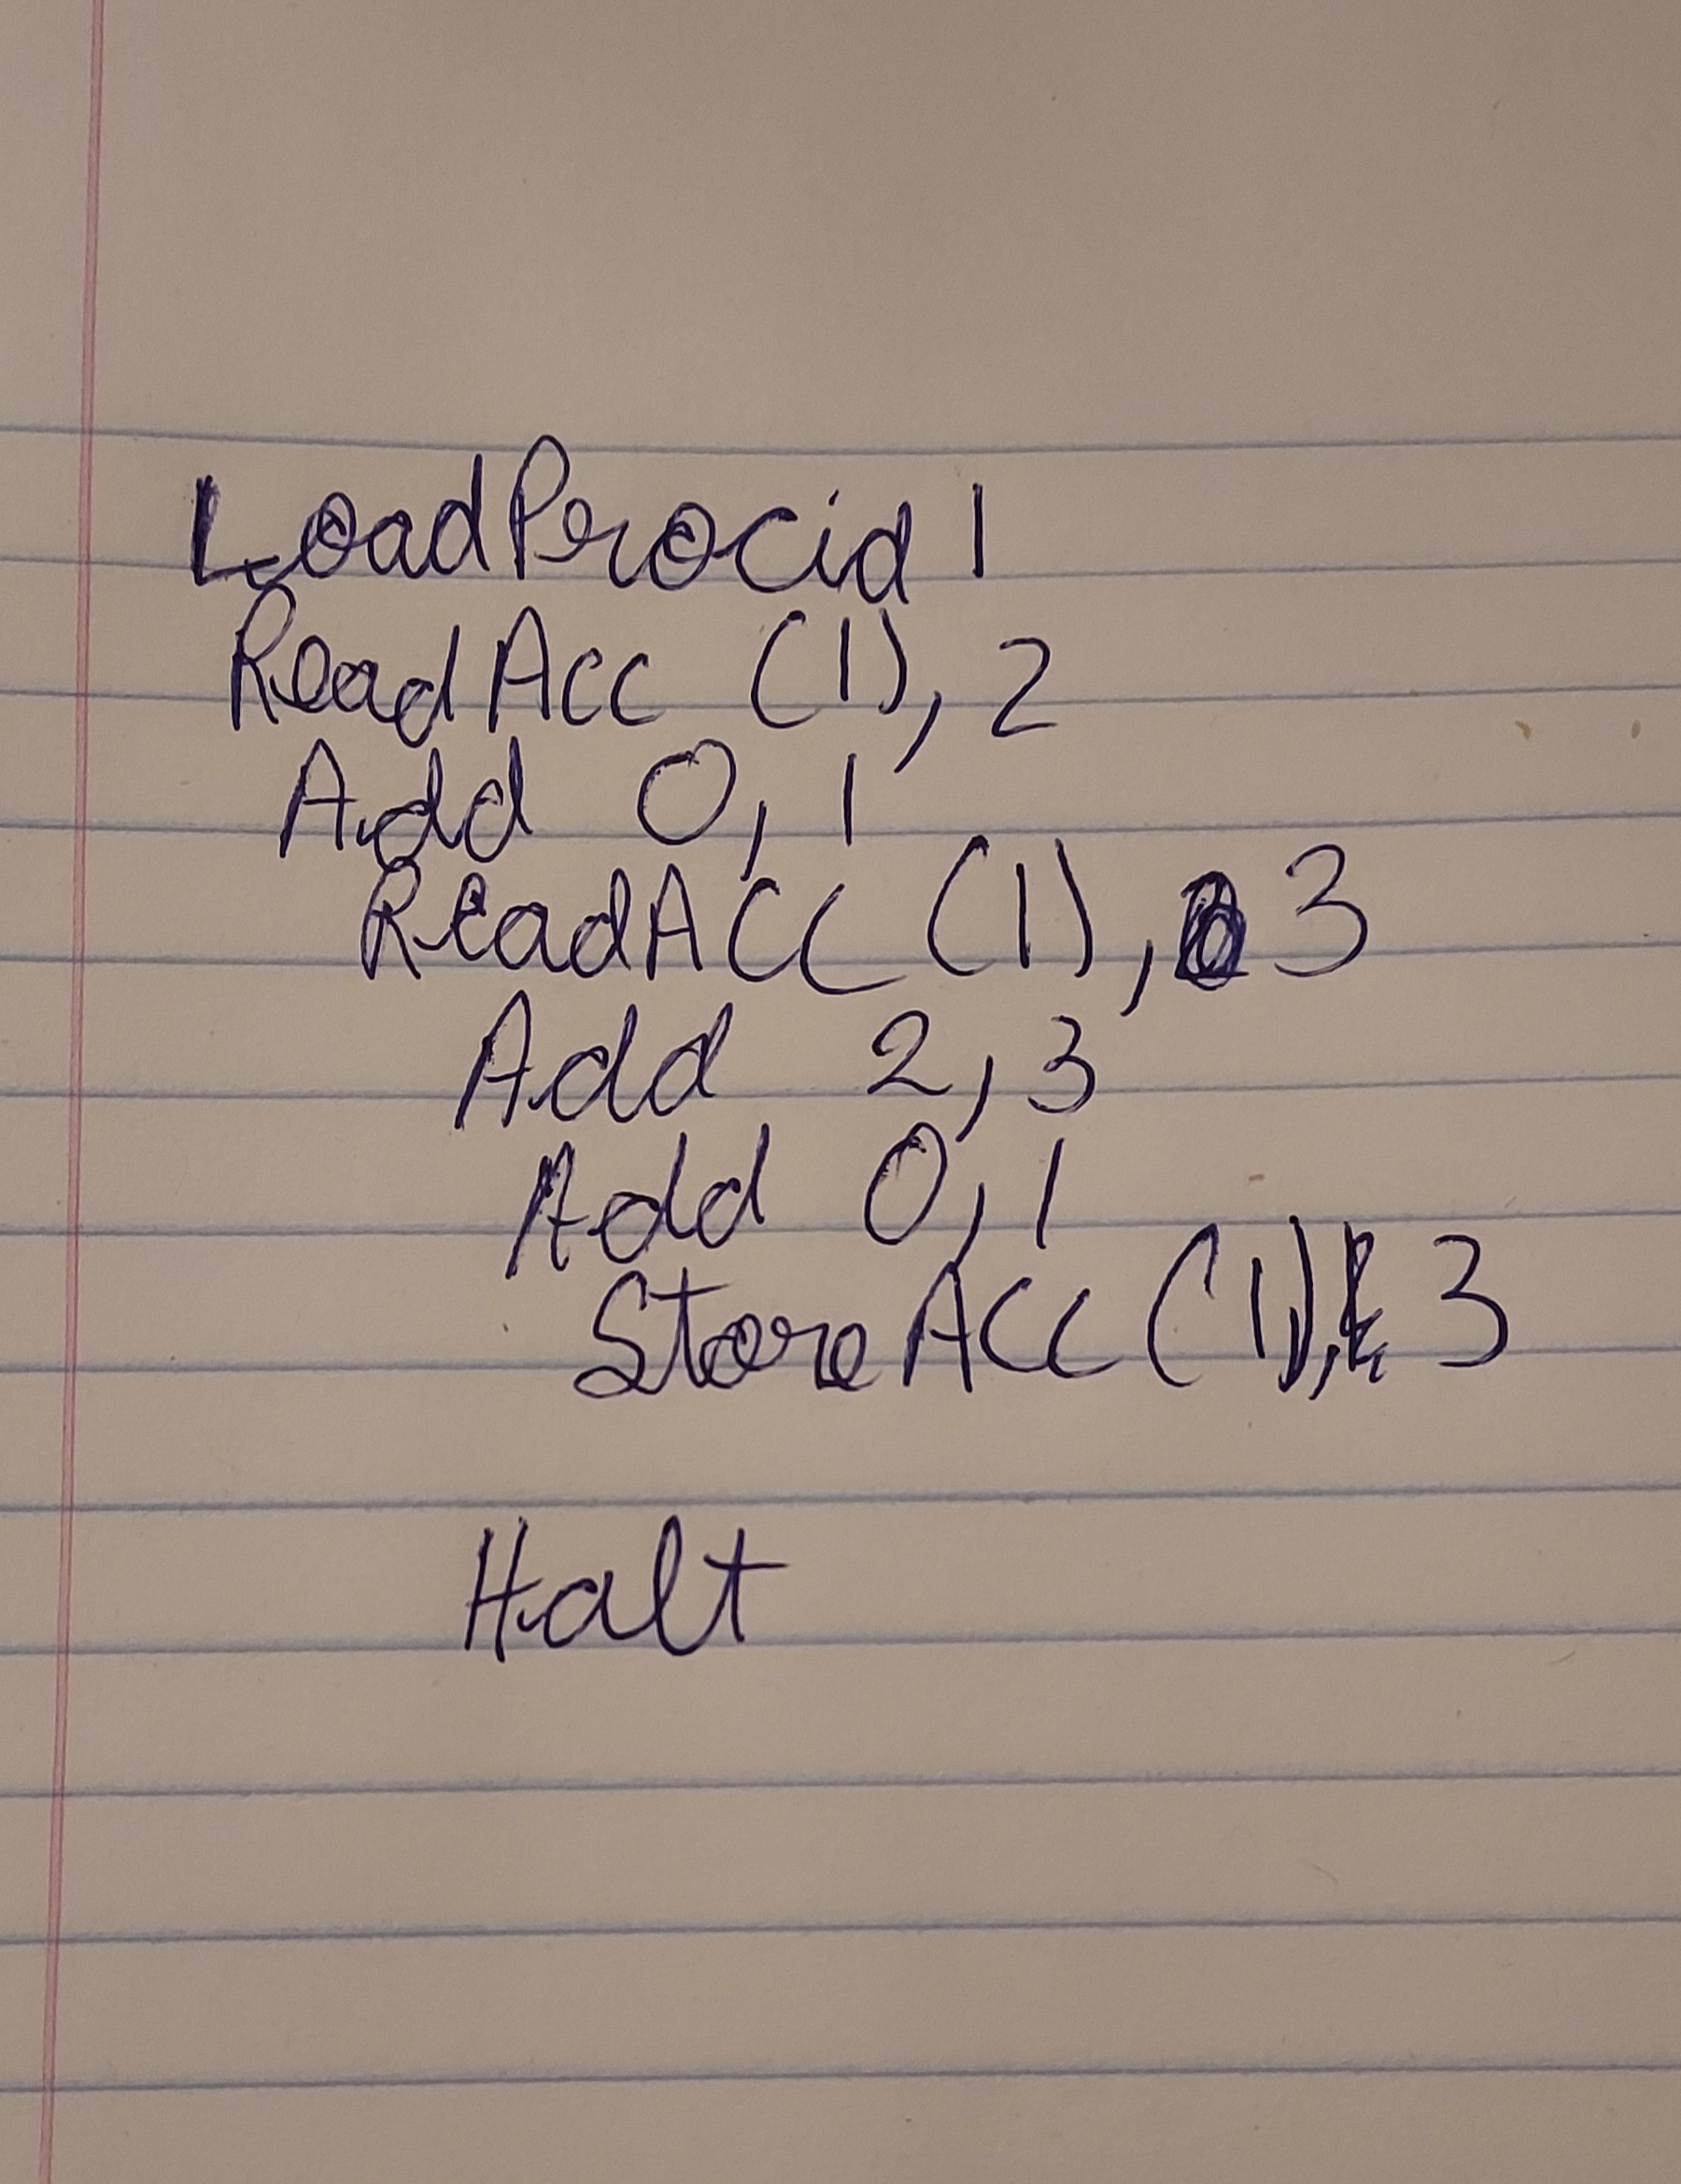 LoadProcid 1
ReadAcc (1), 2
Add 0, 1
ReadAcc (1), 3
Add 2, 3
Add 0, 1
StoreAcc (1), 3
Halt